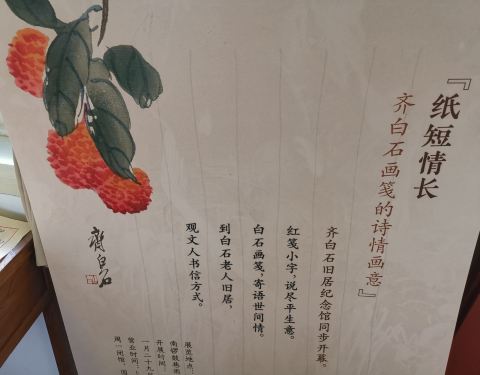 『纸短情长
齐白石画笺的诗情画意』
齐白石旧居纪念馆同步开幕。
红笺小字，说尽平生意。
白石画笺，寄语世间情。
到白石老人旧居，
观文人书信方式。
展览地点：
南锣鼓巷雨
开展时间：
一月二十九
营业时间：
周一闭馆，周
齐白石